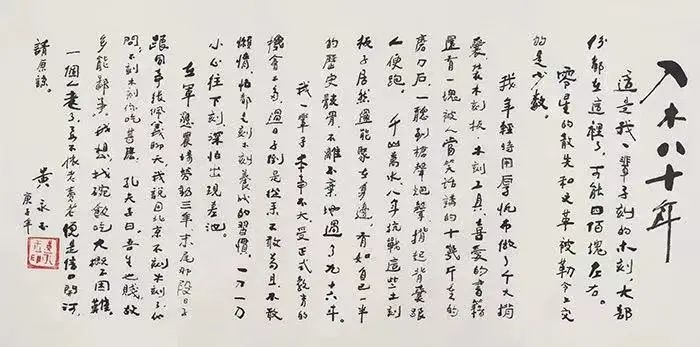 入木八十年
這是我一輩子刻的木刻，大部
份都在這裡了，可能四百塊左右。
零星的散失和文革被勒令上交
的是少數。
我年輕時用厚帆布做了个大揹
囊裝木刻板，木刻工具，喜愛的書籍
還有一塊被人當笑話講的十幾斤重的
磨刀石，一聽到槍聲炮聲，揹起背囊跟
人便跑。千山萬水八年抗戰這些木刻
板子居然還能聚在身邊，有如自己一半
的歷史骸骨，不離不棄地過了九十六年。
我一輩子本事不大，受正式教育的
機會不多，過日子倒是從來不敢苟且，不敢
懶惰，怕都是刻木刻養成的習慣，一刀一刀
小心往下刻，深怕出現差池。
在軍墾農場勞動三年，末尾那段日子
跟同年張佩義聊天，我說回北京不刻木刻了，他
問：不刻木刻你吃甚麼。孔夫子曰：吾少也賤，故
多能鄙事，我想找碗飯吃大概不困難。
一個人老了，若不依老賣老便是信口開河，
請原諒。
黃永玉
庚子年